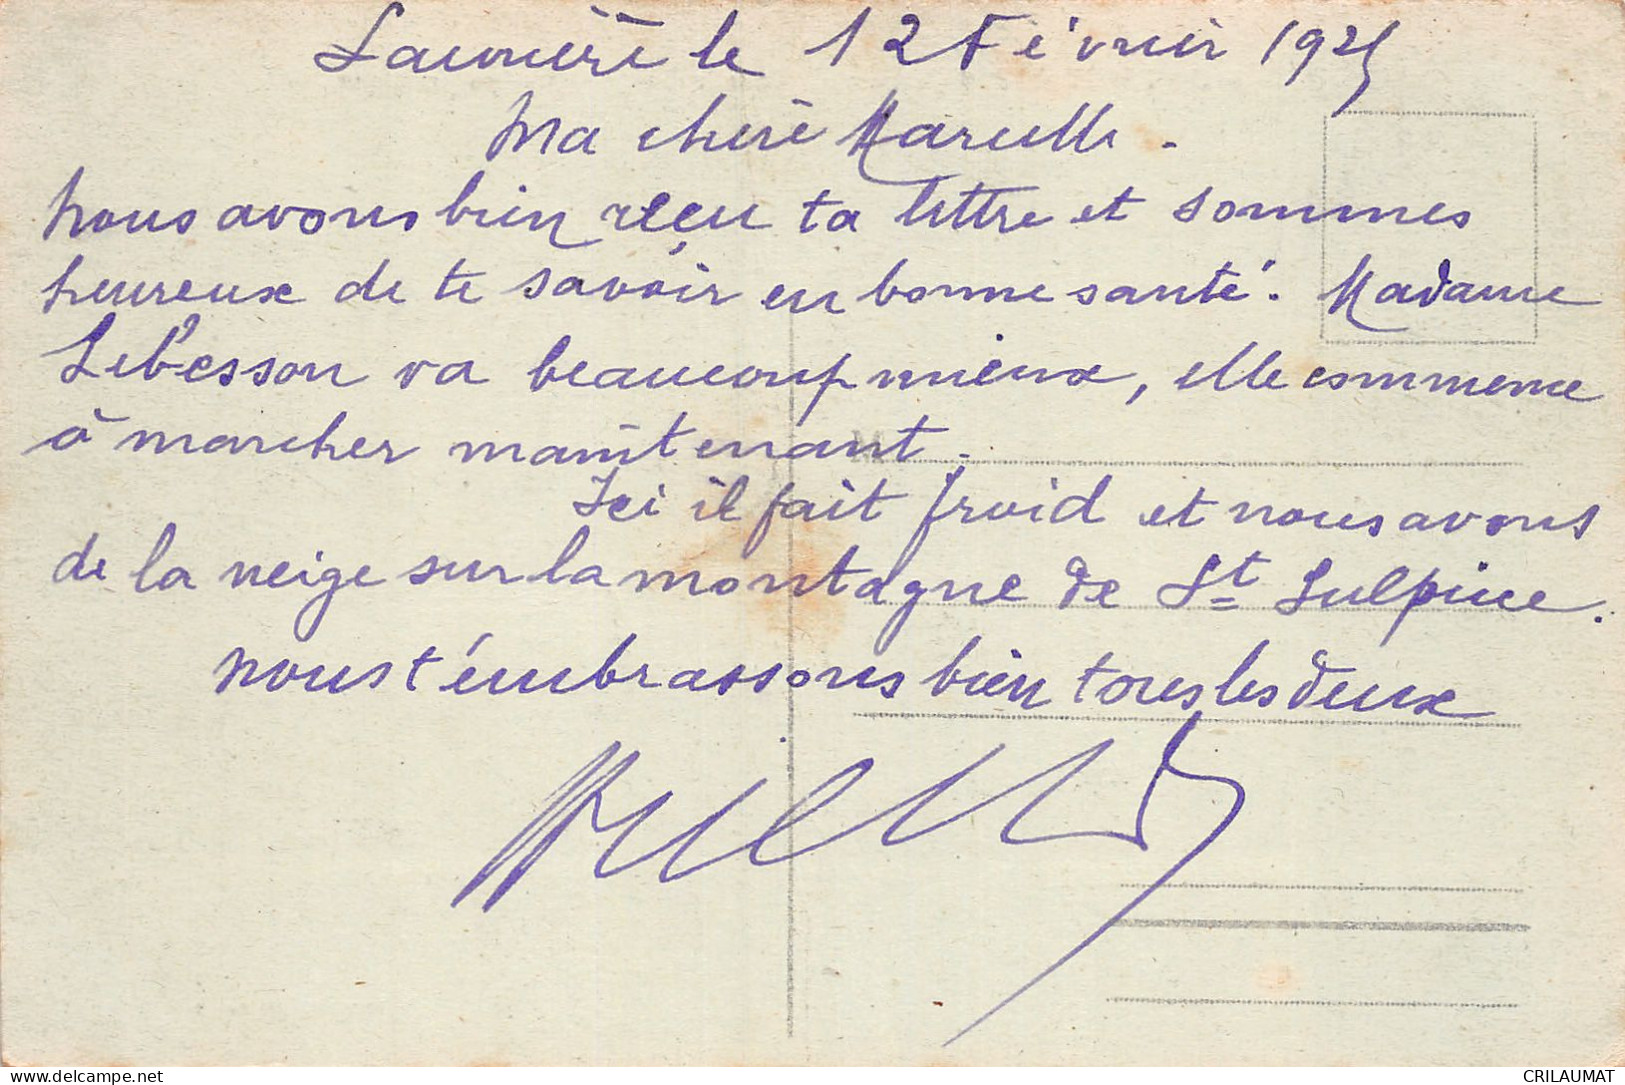 Laurière le 12 Février 1925
Ma chère Marcelle.
Nous avons bien reçu ta lettre et sommes
heureux de te savoir en bonne santé. Madame
Leb'esson va beaucoup mieux, elle commence
à marcher maintenant.
Ici il fait froid et nous avons
de la neige sur la montagne de St Sulpice.
nous t'embrassons bien tous les deux
delcampe.net
CRILAUMAT